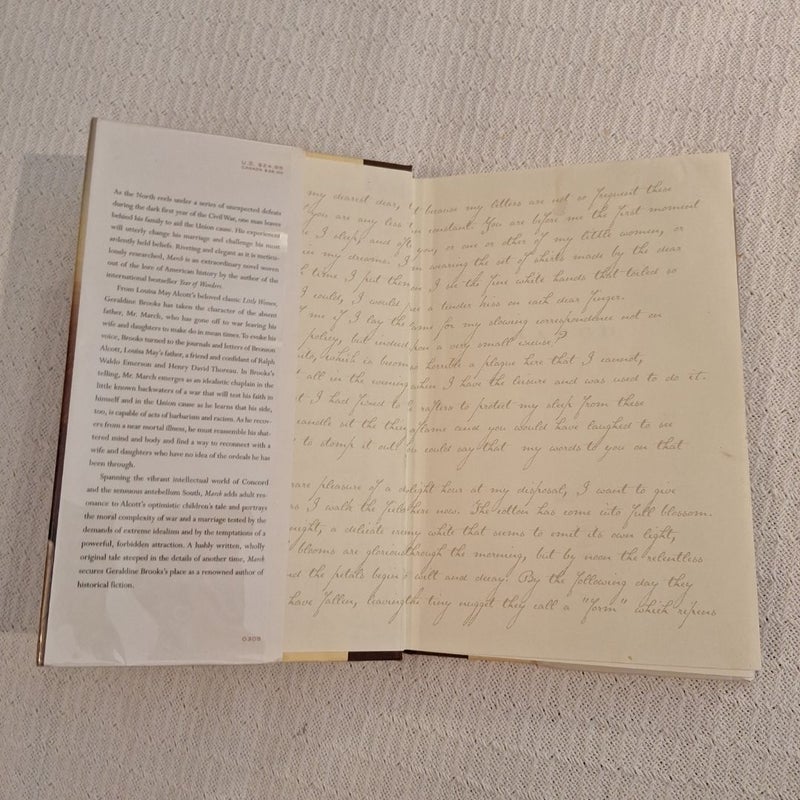 U.S. $24.95
CANADA $36.00
As the North reels under a series of unexpected defeats
during the dark first year of the Civil War, one man leaves
behind his family to aid the Union cause. His experiences
will utterly change his marriage and challenge his most
ardently held beliefs. Riveting and elegant as it is meticu-
lously researched, March is an extraordinary novel woven
out of the lore of American history by the author of the
international bestseller Year of Wonders.
From Louisa May Alcott's beloved classic Little Women,
Geraldine Brooks has taken the character of the absent
father, Mr. March, who has gone off to war leaving his
wife and daughters to make do in mean times. To evoke his
voice, Brooks turned to the journals and letters of Bronson
Alcott, Louisa May's father, a friend and confidant of Ralph
Waldo Emerson and Henry David Thoreau. In Brooks's
telling, Mr. March emerges as an idealistic chaplain in the
little known backwaters of a war that will test his faith in
himself and in the Union cause as he learns that his side,
too, is capable of acts of barbarism and racism. As he recov-
ers from a near mortal illness, he must reassemble his shat-
tered mind and body and find a way to reconnect with a
wife and daughters who have no idea of the ordeals he has
been through.
Spanning the vibrant intellectual world of Concord
and the sensuous antebellum South, March adds adult res-
onance to Alcott's optimistic children's tale and portrays
the moral complexity of war and a marriage tested by the
demands of extreme idealism and by the temptations of a
powerful, forbidden attraction. A lushly written, wholly
original tale steeped in the details of another time, March
secures Geraldine Brooks's place as a renowned author of
historical fiction.
0305
my dearest dear, because my letters are not so frequent these
you are any less constant. You are before me the first moment
I sleep, and oft you, or one or other of my little women, or
in my dreams. I wearing the set of shirts made by the dear
time I put them I see the fine white hands that toiled so
I could, I would a tender kiss on each dear finger.
me if I lay the for my slowing correspondence not on
policy, but indeed a very small excuse?
which is becom horrible a plague here that I cannot,
all in the evening when I have the leisure and was used to do it.
I had fixed to rafters to protect my sleep from these
candle set the thing aflame and you would have laughed to see
to stomp it out could say that my words to you on that
rare pleasure of a daylight hour at my disposal, I want to give
I walk the fields here now. The cotton has come into full blossom.
a delicate creamy white that seems to emit its own light,
blooms are glorious through the morning, but by noon the relentless
the petals begin wilt and decay. By the following day they
have fallen, leaving the tiny nugget they call a "form" which ripens